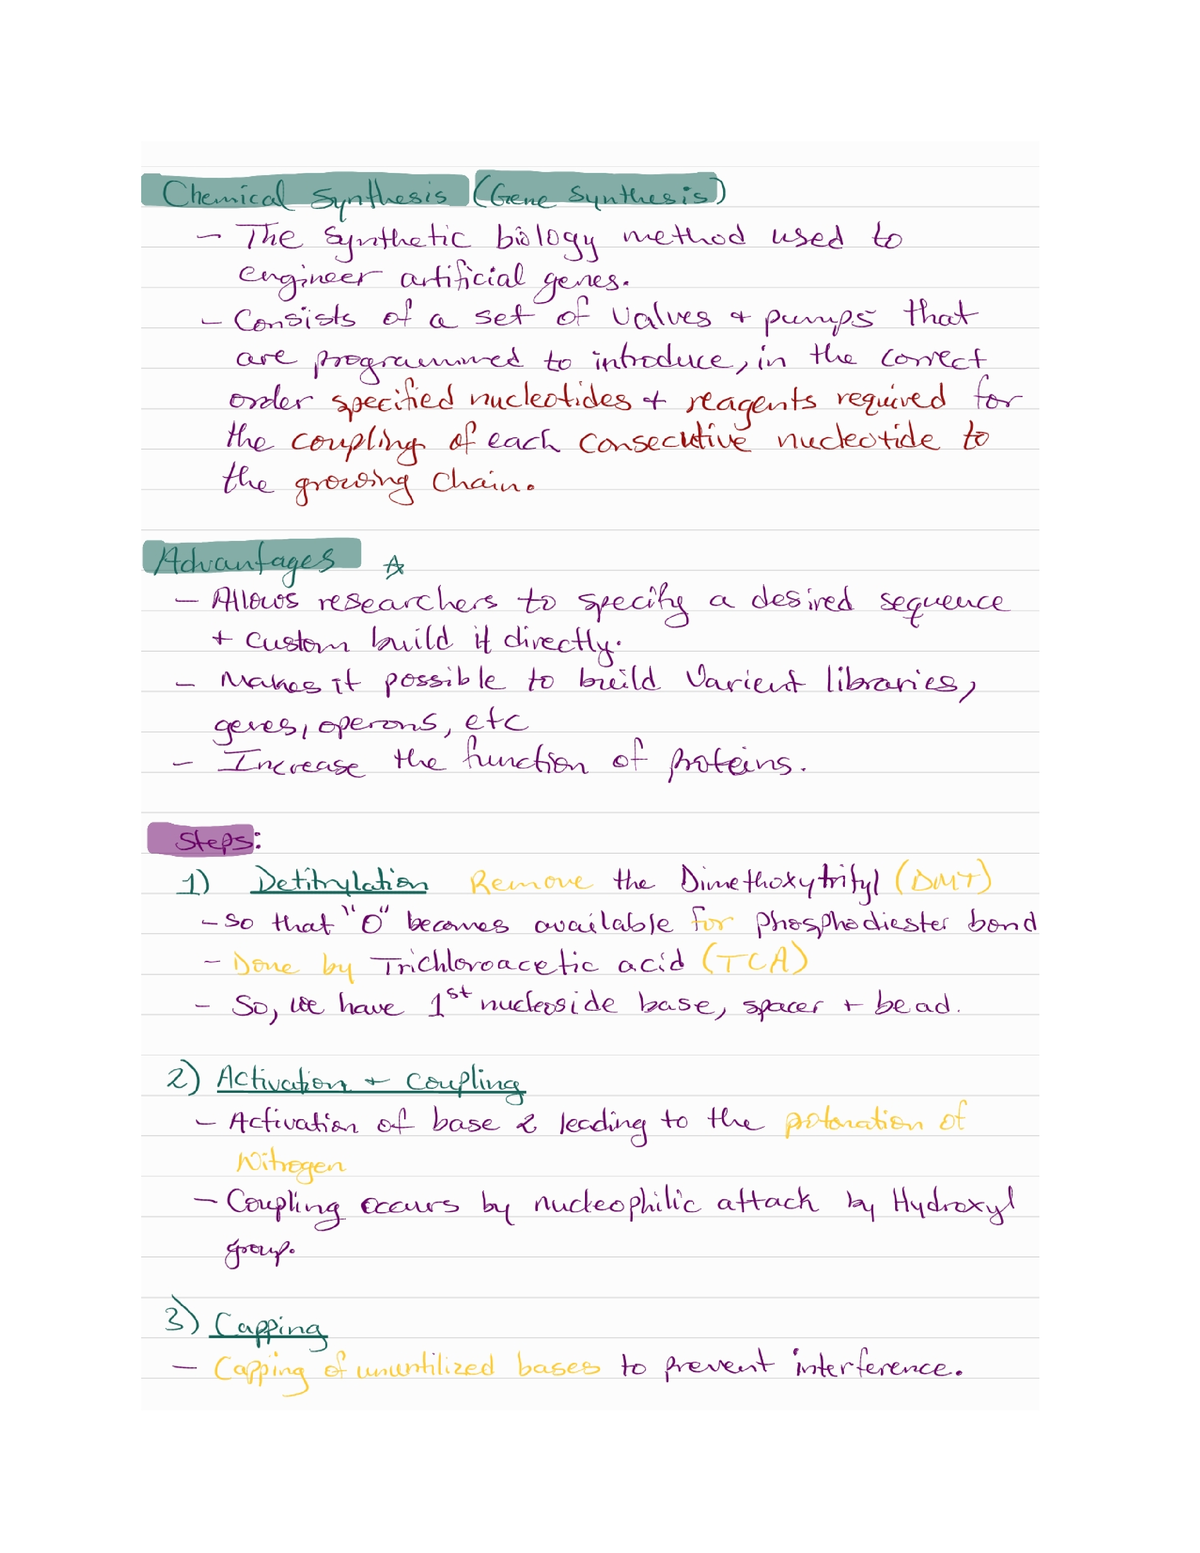 Chemical Synthesis (Gene Synthesis)
- The synthetic biology method used to
engineer artificial genes.
- Consists of a set of valves + pumps that
are programmed to introduce, in the correct
order specified nucleotides + reagents required for
the coupling of each consecutive nucleotide to
the growing chain.
Advantages ☆
- Allows researchers to specify a desired sequence
+ custom build it directly.
- Makes it possible to build Varient libraries,
genes, operons, etc
- Increase the function of proteins.
Steps:
1) Detitrylation Remove the Dimethoxytrityl (DMT)
- so that "O" becomes available for phosphodiester bond
- Done by Trichloroacetic acid (TCA)
- So, we have 1st nucleoside base, spacer + bead.
2) Activation + Coupling
- Activation of base 2 leading to the protonation of
Nitrogen
- Coupling occurs by nucleophilic attack by Hydroxyl
group.
3) Capping
- Capping of ununtilized bases to prevent interference.